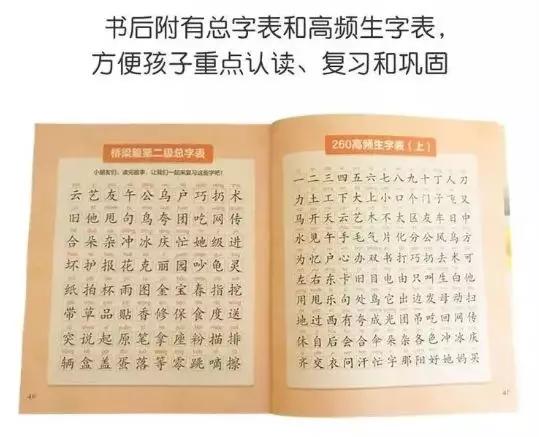 书后附有总字表和高频生字表，
方便孩子重点认读、复习和巩固
桥梁篇第二级总字表
小朋友们，读完故事，让我们一起来复习这些字吧！
云艺友午公鸟户巧扔术
旧他甩句鸟夸团吃网传
合朵杂冲冰庆忙她级进
坏护报花克丽园吵龟灵
纸拍杯使兔图金宝春指挖
带草品贴香修保食度送
突说起原笔拿座粉描排
辆盒盖蛋落等零跳嘀擦
46
260高频生字表（上）
一二三四五六七八九十丁人刀
力土工下大上小口个门子飞又
马开天云艺木不太区友车日中
水见午手毛气片化分公风乌方
为忆户心办双书打巧扔去术可
左右东卡旧目电由只叫生白他
用甩乐句处鸟它出边发母动扫
地过西有夸成光团吊吃回网传
休自后会合伞朵杂各色冲冰庆
齐交衣问汗忙字那阳好她妈买
47